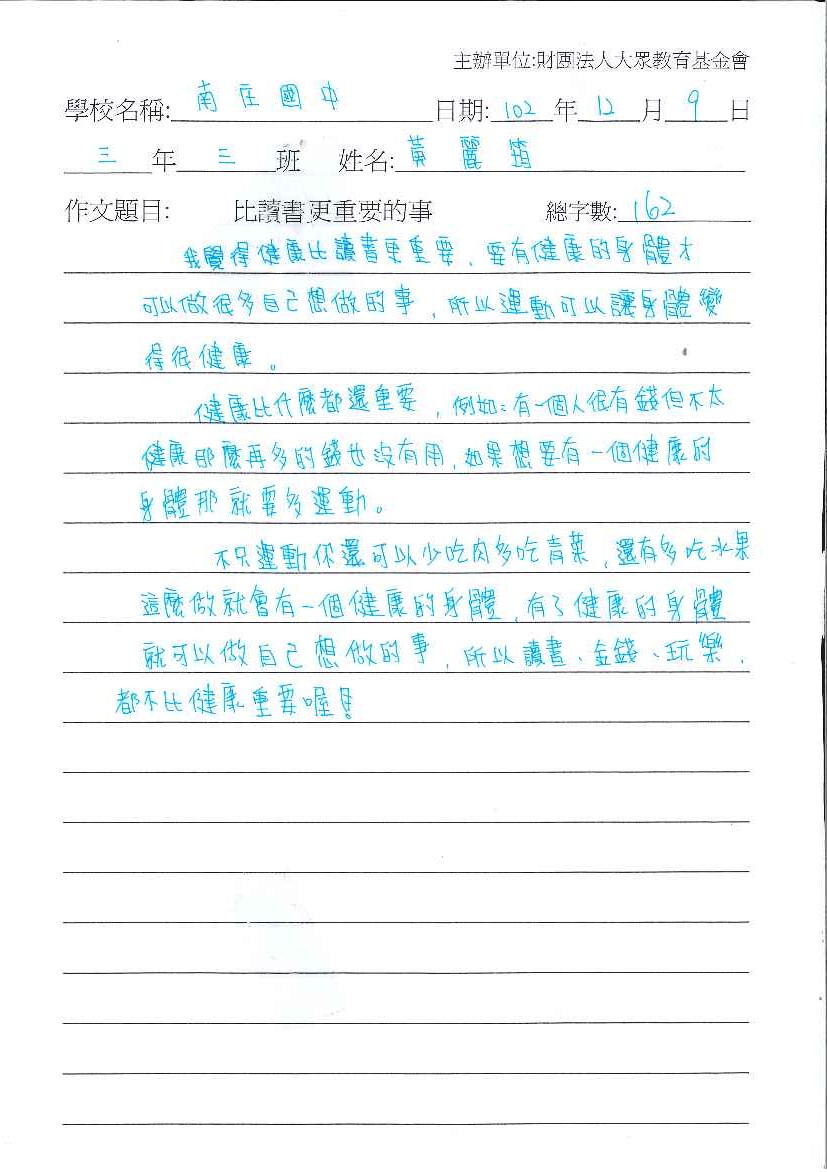 主辦單位:財團法人大眾教育基金會
學校名稱: 南庄國中 日期: 102 年 12 月 9 日
三 年 三 班 姓名: 黃麗筠
作文題目: 比讀書更重要的事 總字數: 162
我覺得健康比讀書更重要，要有健康的身體才
可以做很多自己想做的事，所以運動可以讓身體變
得很健康。
健康比什麼都還重要，例如:有一個人很有錢但不太
健康那麼再多的錢也沒有用，如果想要有一個健康的
身體那就要多運動。
不只運動你還可以少吃肉多吃青菜，還有多吃水果
這麼做就會有一個健康的身體，有了健康的身體
就可以做自己想做的事，所以讀書、金錢、玩樂，
都不比健康重要喔!